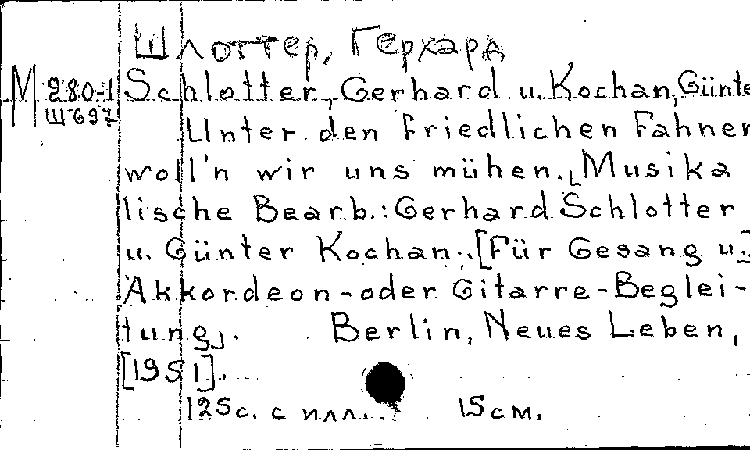 Шлоттер, Герхард
М 280-1 Schlotter, Gerhard u. Kochan, Günte
Ш697
Unter den Friedlichen Fahnen
woll'n wir uns mühen. Musika
lische Bearb.: Gerhard Schlotter
u. Günter Kochan. [Für Gesang u.]
Akkordeon-oder Gitarre-Beglei-
tung]. Berlin, Neues Leben,
[1951].
125с. с илл. 15см.